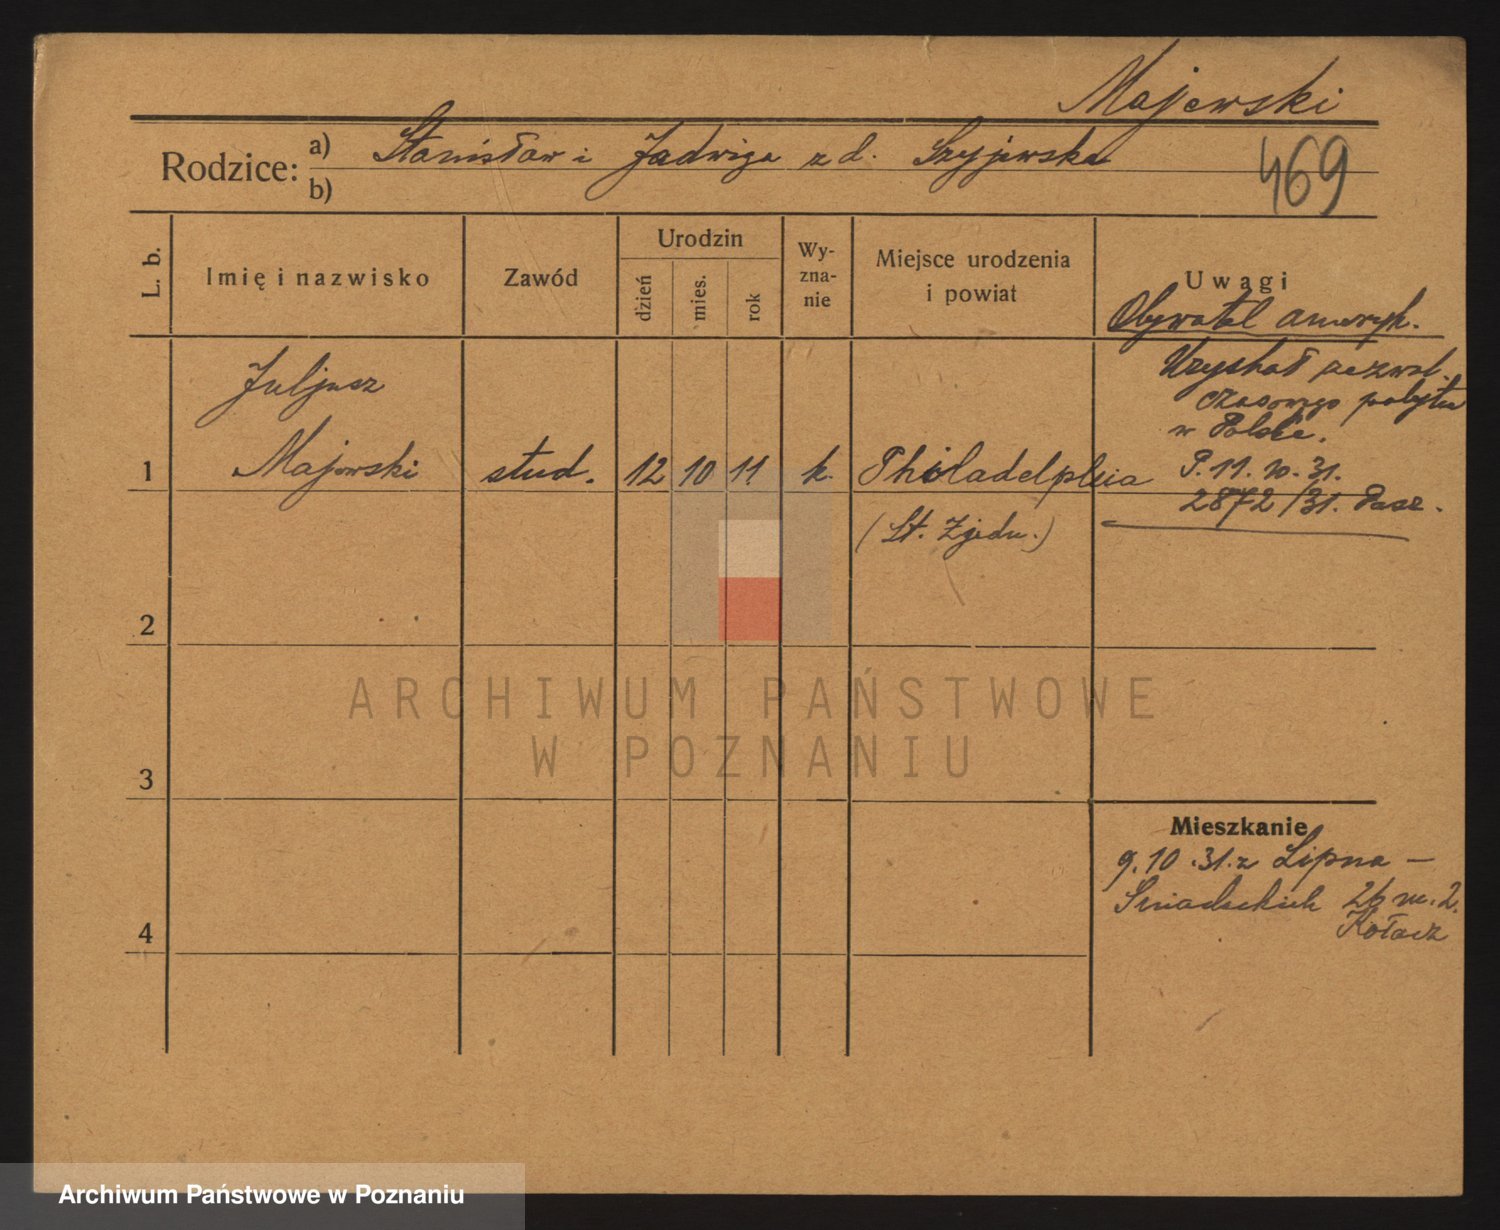 Majewski
Rodzice: a) Stanisław i Jadwiga z d. Szyjewska
b)
469
L. b.
Imię i nazwisko
Zawód
Urodzin
dzień
mies.
rok
Wy-
zna-
nie
Miejsce urodzenia
i powiat
Uwagi
Obywatel ameryk.
Uzyskał zezwol.
czasowego pobytu
w Polsce.
P. 11. 10. 31.
2872/31. Pasz.
Juljusz
1 Majewski stud. 12 10 11 k. Philadelphia
(St. Zjedn.)
2
ARCHIWUM PAŃSTWOWE
W POZNANIU
3
Mieszkanie
9.10.31. z Lipna —
Śniadeckich 26 m. 2.
4
Kołacz
Archiwum Państwowe w Poznaniu